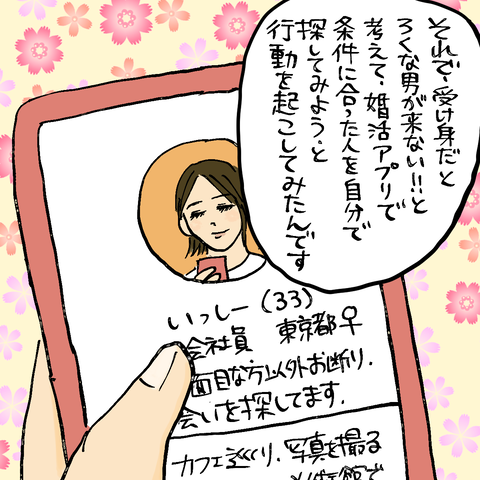 それで、受け身だと
ろくな男が来ない!!と
考えて、婚活アプリで
条件に合った人を自分で
探してみよう、と
行動を起こしてみたんです
いっしー(33)
会社員 東京都♀
面目な方以外お断り、
会いを探してます、
カフェ巡り、写真を撮る
館で